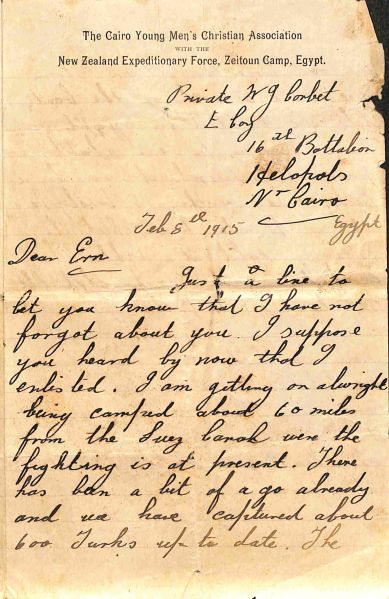 The Cairo Young Men's Christian Association
WITH THE
New Zealand Expeditionary Force, Zeitoun Camp, Egypt.
Private W J Corbet
E Coy
16th Battalion
Helopols
Nr Cairo
Egypt
Feb 8th 1915
Dear Ern
Just a line to
let you know that I have not
forgot about you. I suppose
you heard by now that I
enlisted. I am gitting on alwright
being camped about 60 miles
from the Suez Canal were the
fighting is at present. There
has ban a bit of a go already
and we have captured about
600 Turks up to date. The